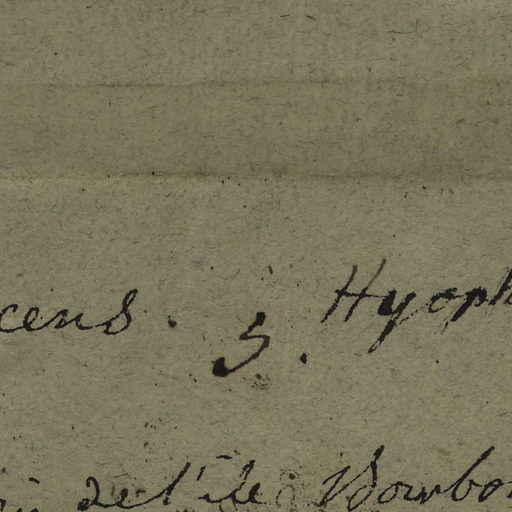 cens. 5. Hyoph
de l'ile Bourbo